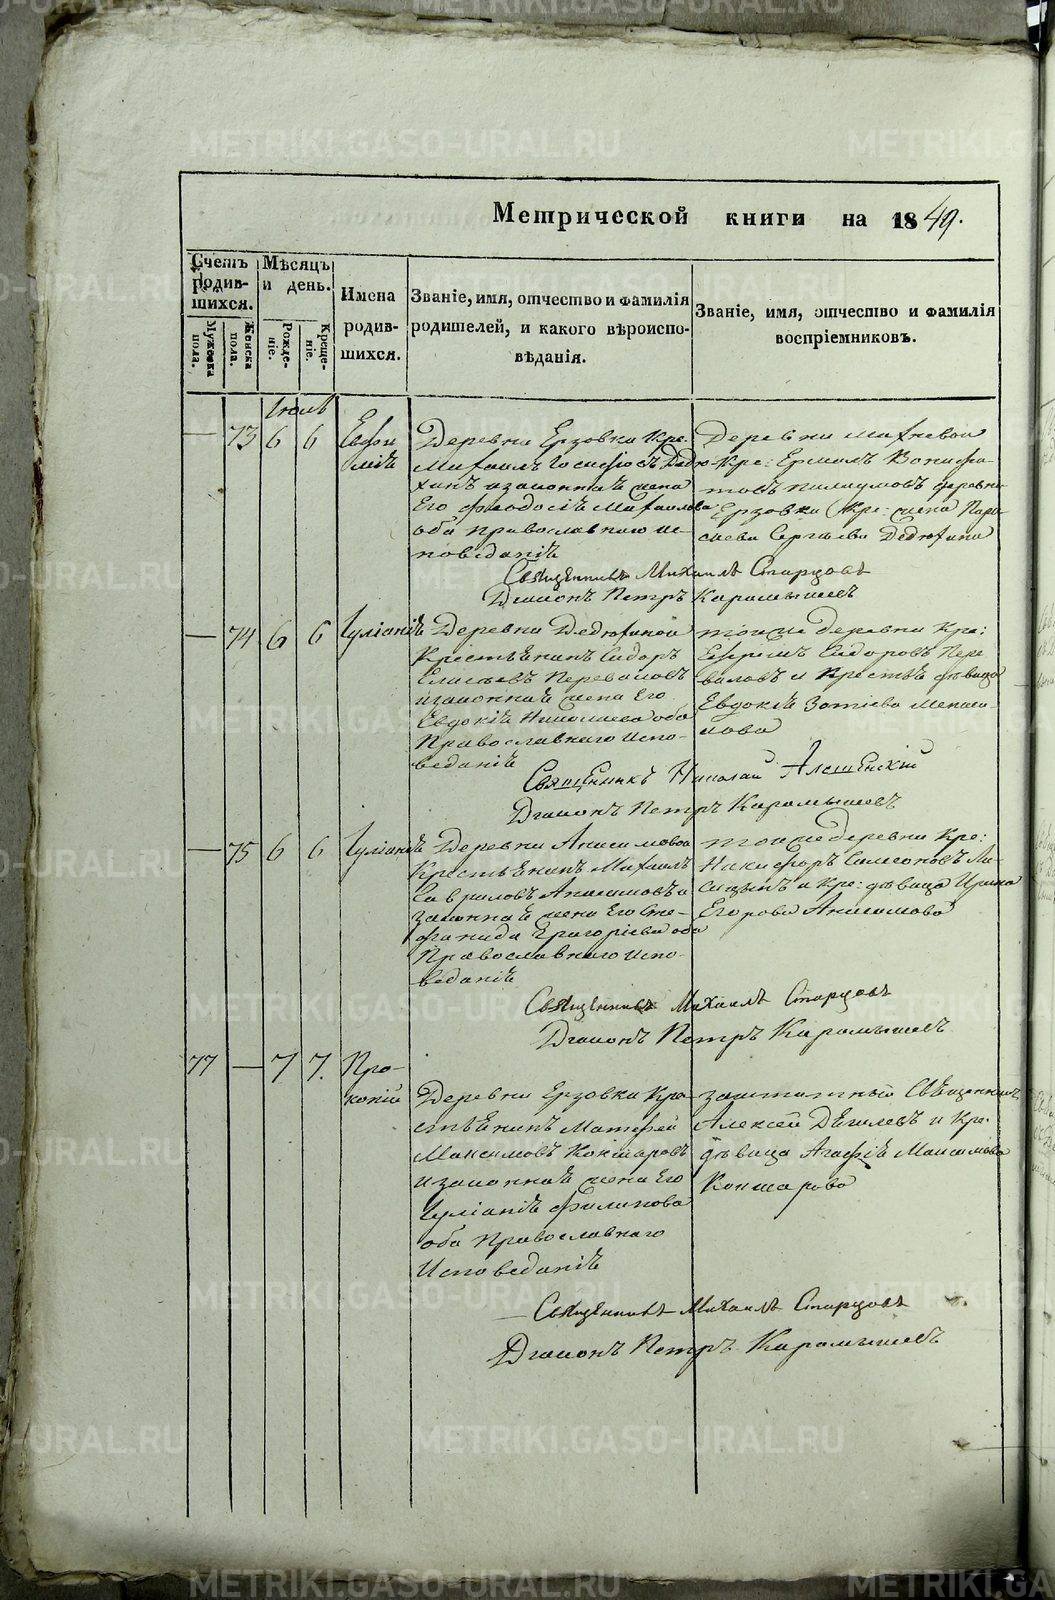 METRIKI.GASO-URAL.RU
Метрической книги на 1849.
Счетъ родив-шихся.
Мужеска пола.
Женска пола.
Мѣсяцъ и день.
Рожде-ніе.
Креще-ніе.
Имена родив-шихся.
Званіе, имя, отчество и фамилія родителей, и какого вѣроиспо-вѣданія.
Званіе, имя, отчество и фамилія воспріемниковъ.
Іюль
— 73 6 6
Евфи
міѣ
Деревни Ерзовки Кре.
Михаилъ Іосифовъ Дедю-
хинъ изаконнаѣ жена
Его Феодосіѣ Михаилова
оба православнаго ис-
поведаніѣ
Деревни Махневой
Кре: Ермилъ Вонифа-
товъ деревни
Ерзовки Кре: жена Пара-
скева Сергѣева Дедюхина
Священникъ Михаилъ Старцовъ
Дїаконъ Петръ Карамышевъ
— 74 6 6 Іуліаніѣ
Деревни Дедюхиной
Крестьѣнинъ Сидоръ
Елисѣевъ Переваловъ
изаконнаѣ жена Его
Евдокіѣ Николаева оба
Православнаго испо-
веданіѣ
тойже деревни Кре:
Ефремъ Сидоровъ Пере
валовъ и Крестьѣ дѣвица
Евдокіѣ Зотіева
Священникъ Николай
Дїаконъ Петръ Карамышевъ
— 75 6 6 Іуліаніѣ
Деревни Анисимовой
Крестьѣнинъ Михаилъ
Гавриловъ Анисимовъ и
законнаѣ жена Его Сте-
фанида Григоріева оба
Православнаго испо-
веданіѣ
тойже деревни Кре:
Никифоръ Симеоновъ Ли-
сицынъ и Кре: дѣвица Ирина
Егорова Анисимова
Священникъ Михаилъ Старцовъ
Дїаконъ Петръ Карамышевъ
77 — 7 7.
Про-
копій
Деревни Ерзовки Кре-
стьѣнинъ Матфей
Максимовъ Коншаровъ
изаконнаѣ жена Его
Іуліаніѣ Филипова
оба Православнаго
Исповеданіѣ
заштатный Священникъ
Алексей Дѣгилевъ и Кре.
дѣвица Агафіѣ Максимова
Коншарова
Священникъ Михаилъ Старцовъ
Дїаконъ Петръ Карамышевъ